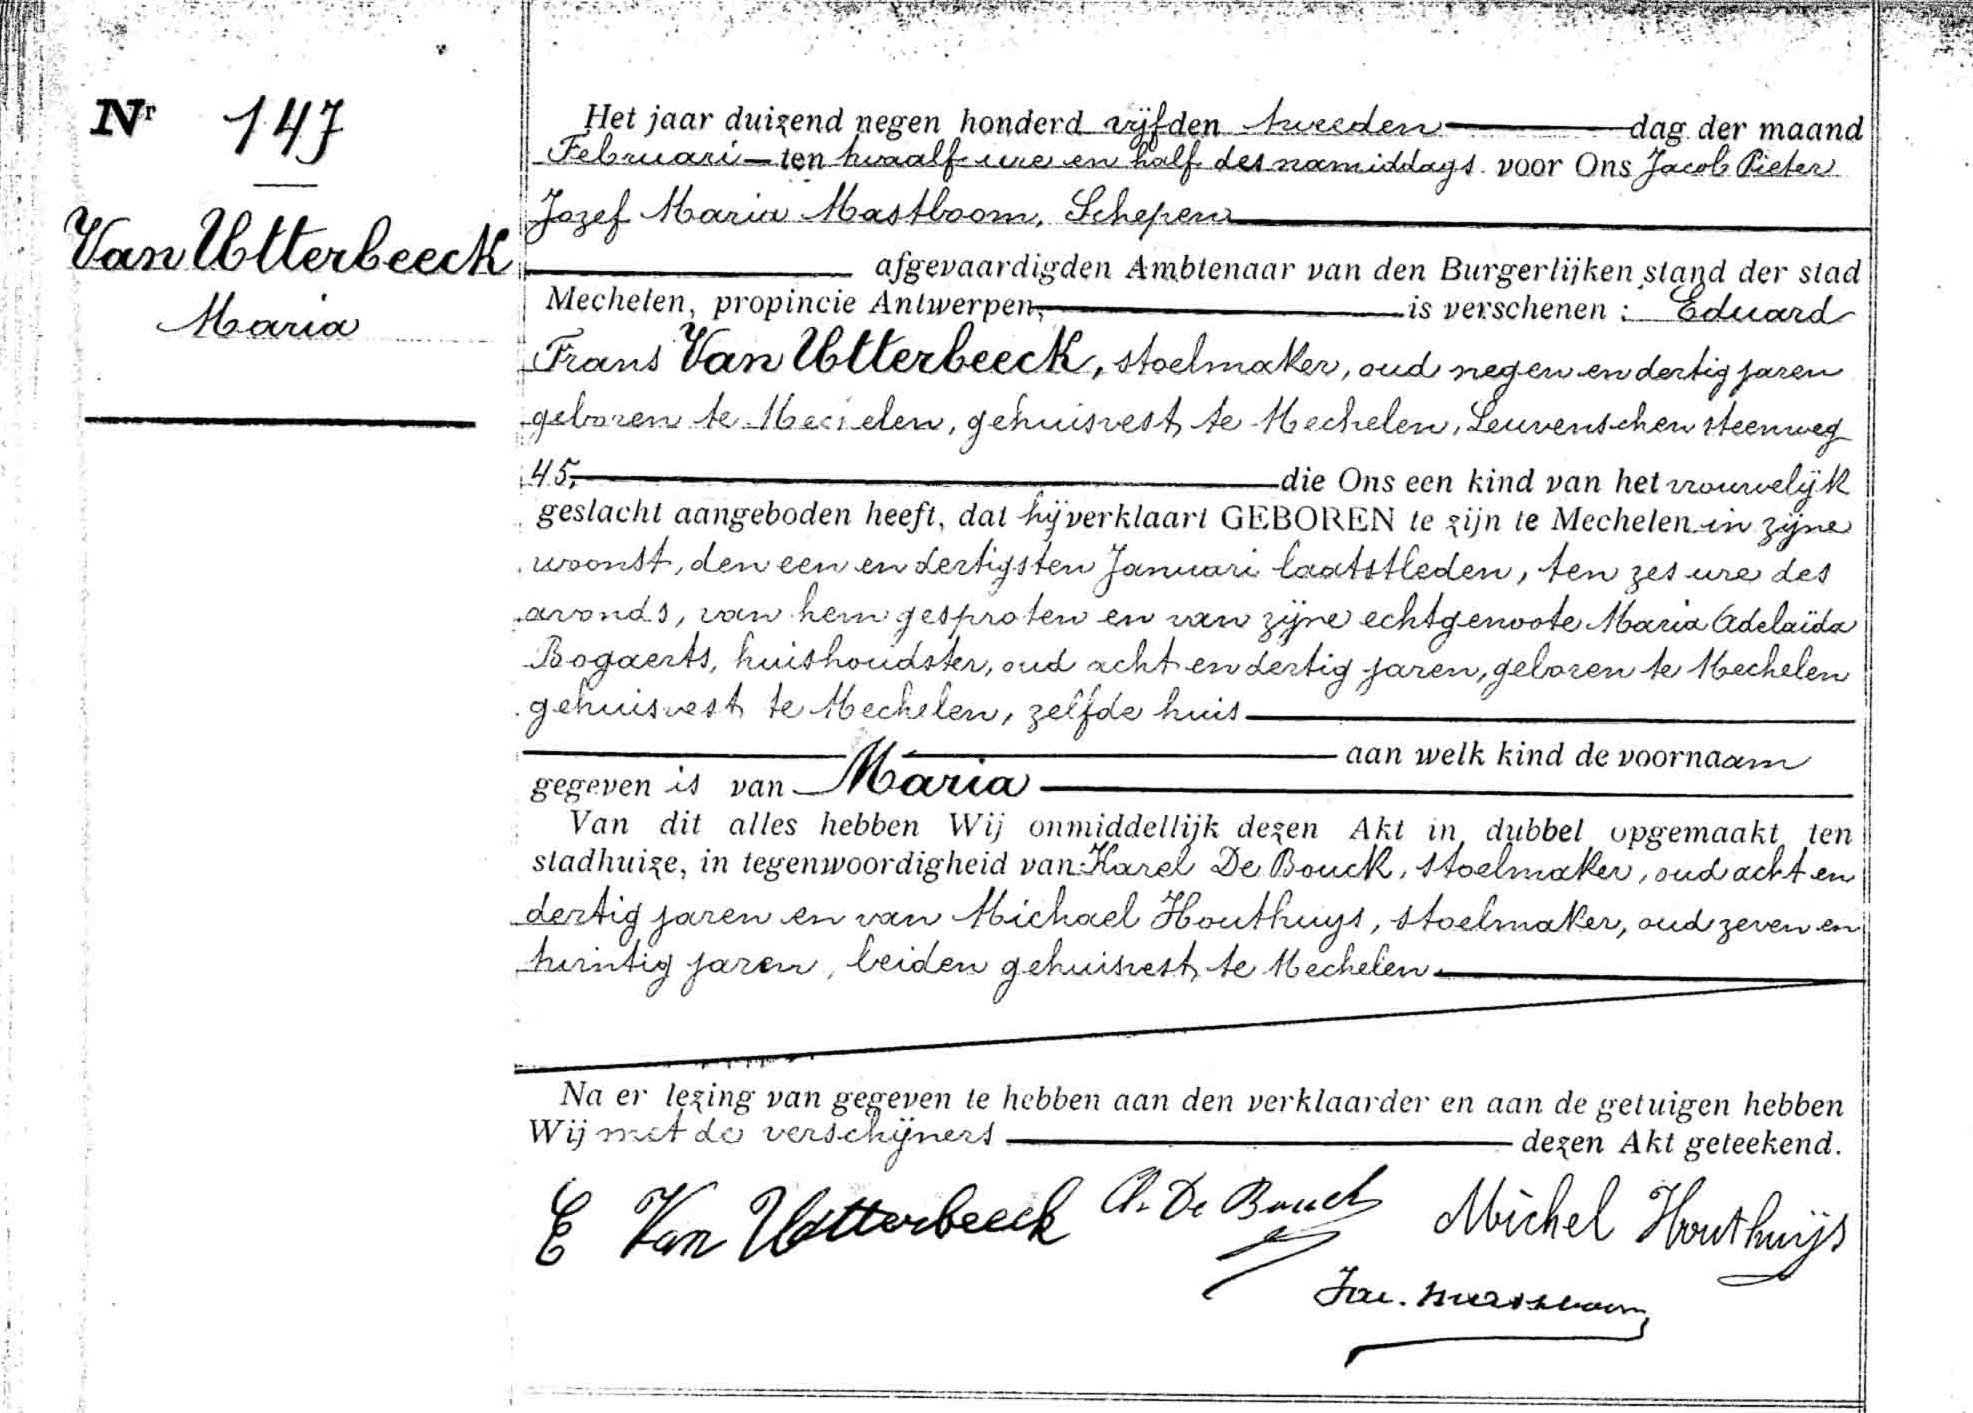 Nr 147
Van Utterbeeck
Maria
Het jaar duizend negen honderd vijf den tweeden dag der maand
Februari ten twaalf ure en half des namiddags voor Ons Jacob Pieter
Jozef Maria Mastboom, Schepen
afgevaardigden Ambtenaar van den Burgerlijken stand der stad
Mechelen, provincie Antwerpen, is verschenen : Eduard
Frans Van Utterbeeck, stoelmaker, oud negen en dertig jaren
geboren te Mechelen, gehuisvest te Mechelen, Leuvenschen steenweg
45, die Ons een kind van het vrouwelijk
geslacht aangeboden heeft, dat hij verklaart GEBOREN te zijn te Mechelen in zijne
woonst, den een en dertigsten Januari laatstleden, ten zes ure des
avonds, van hem gesproten en van zijne echtgenoote Maria Adelaïda
Bogaerts, huishoudster, oud acht en dertig jaren, geboren te Mechelen
gehuisvest te Mechelen, zelfde huis
aan welk kind de voornaam
gegeven is van Maria
Van dit alles hebben Wij onmiddellijk dezen Akt in dubbel opgemaakt ten
stadhuize, in tegenwoordigheid van Karel De Bouck, stoelmaker, oud acht en
dertig jaren en van Michael Houthuys, stoelmaker, oud zeven en
twintig jaren, beiden gehuisvest te Mechelen
Na er lezing van gegeven te hebben aan den verklaarder en aan de getuigen hebben
Wij met de verschijners dezen Akt geteekend.
E Van Utterbeeck Ch. De Bouck Michel Houthuijs
Jac. Mastboom